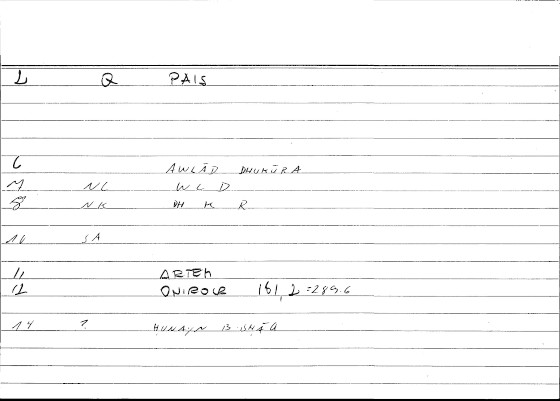 L Q PAIS
6 AWLĀD DHUKŪRA
7 NL W L D
8 NK DH K R
10 SA
11 ARTEM
12 ONIROCR 161, 2 = 289.6
14 ? HUNAYN B ISHĀQ